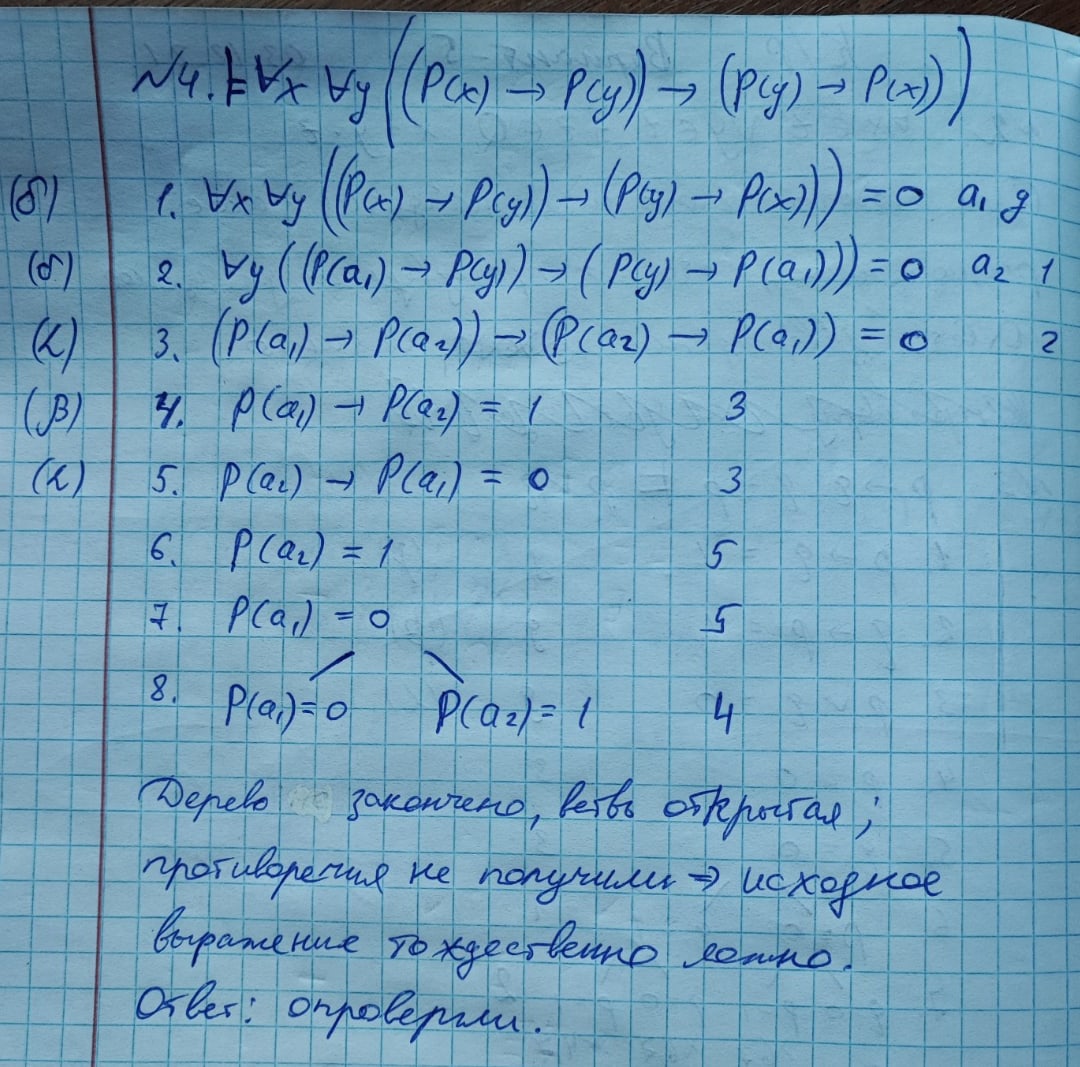 №4. ⊨ ∀x ∀y ((P(x) → P(y)) → (P(y) → P(x)))
(δ) 1. ∀x ∀y ((P(x) → P(y)) → (P(y) → P(x))) = 0 a₁ д
(δ) 2. ∀y ((P(a₁) → P(y)) → (P(y) → P(a₁))) = 0 a₂ 1
(α) 3. (P(a₁) → P(a₂)) → (P(a₂) → P(a₁)) = 0 2
(β) 4. P(a₁) → P(a₂) = 1 3
(α) 5. P(a₂) → P(a₁) = 0 3
6. P(a₂) = 1 5
7. P(a₁) = 0 5
8. P(a₁) = 0 P(a₂) = 1 4
Дерево закончено, ветвь открытая;
противоречия не получили ⇒ исходное
выражение тождественно ложно.
Ответ: опровергли.